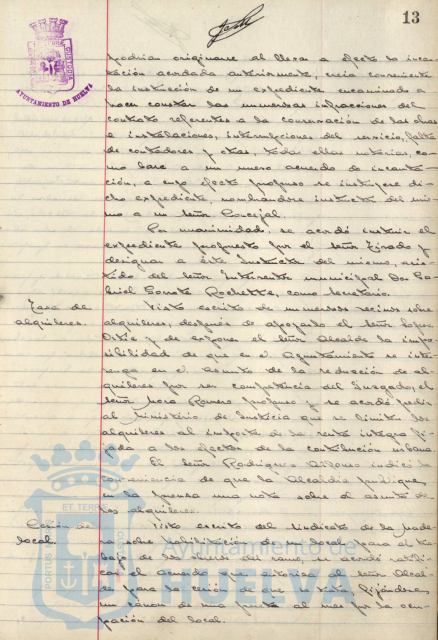 13
AYUNTAMIENTO DE HUELVA
podrían originarse al llevar a efecto la incau-
tación acordada anteriormente, creía conveniente
la instrucción de un expediente encaminado a
hacer constar las numerosas infracciones del
contrato referentes a la conservación de las obras
e instalaciones, interrupciones del servicio, falta
de contadores y otras, todas ellas notorias, co-
mo base a un nuevo acuerdo de incauta-
ción, a cuyo efecto propuso se instruyera di-
cho expediente, nombrándose instructor del mis-
mo a un señor Concejal.
Por unanimidad, se acordó instruir el
expediente propuesto por el señor Tirado y
designar a éste Instructor del mismo, asis-
tido del señor Interventor municipal Don Ga-
briel como Secretario.
Tasa de
alquileres.
Visto escrito de numerosos vecinos sobre
alquileres, después de apoyarlo el señor López
y de exponer el señor Alcalde la impo-
sibilidad de que en el Ayuntamiento se inter-
venga en el asunto de la reducción de al-
quileres por ser competencia del Juzgado, el
señor Mora Romero propuso y se acordó pedir
al Ministerio de Justicia que se limiten los
alquileres al importe de la renta íntegra fi-
jada a los efectos de la contribución urbana.
El señor Rodríguez Alfonso indicó la
conveniencia de que la Alcaldía publique
en la prensa una nota sobre el asunto de
los alquileres.
Cesión de
local.
Visto escrito del Sindicato de la Made-
ra sobre habilitación de un local para el tra-
bajo de los del ramo, se acordó ratifi-
car el acuerdo que autoriza al señor Alcal-
de para la cesión de que se trata, fijándoles
un canon de una peseta al mes por la ocu-
pación del local.
Ayuntamiento de
HUELVA